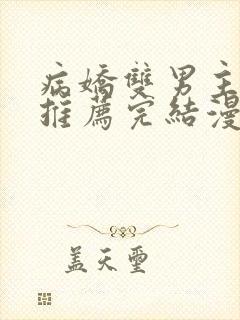 病嬌雙男主
推薦完結漫
蓋天璽